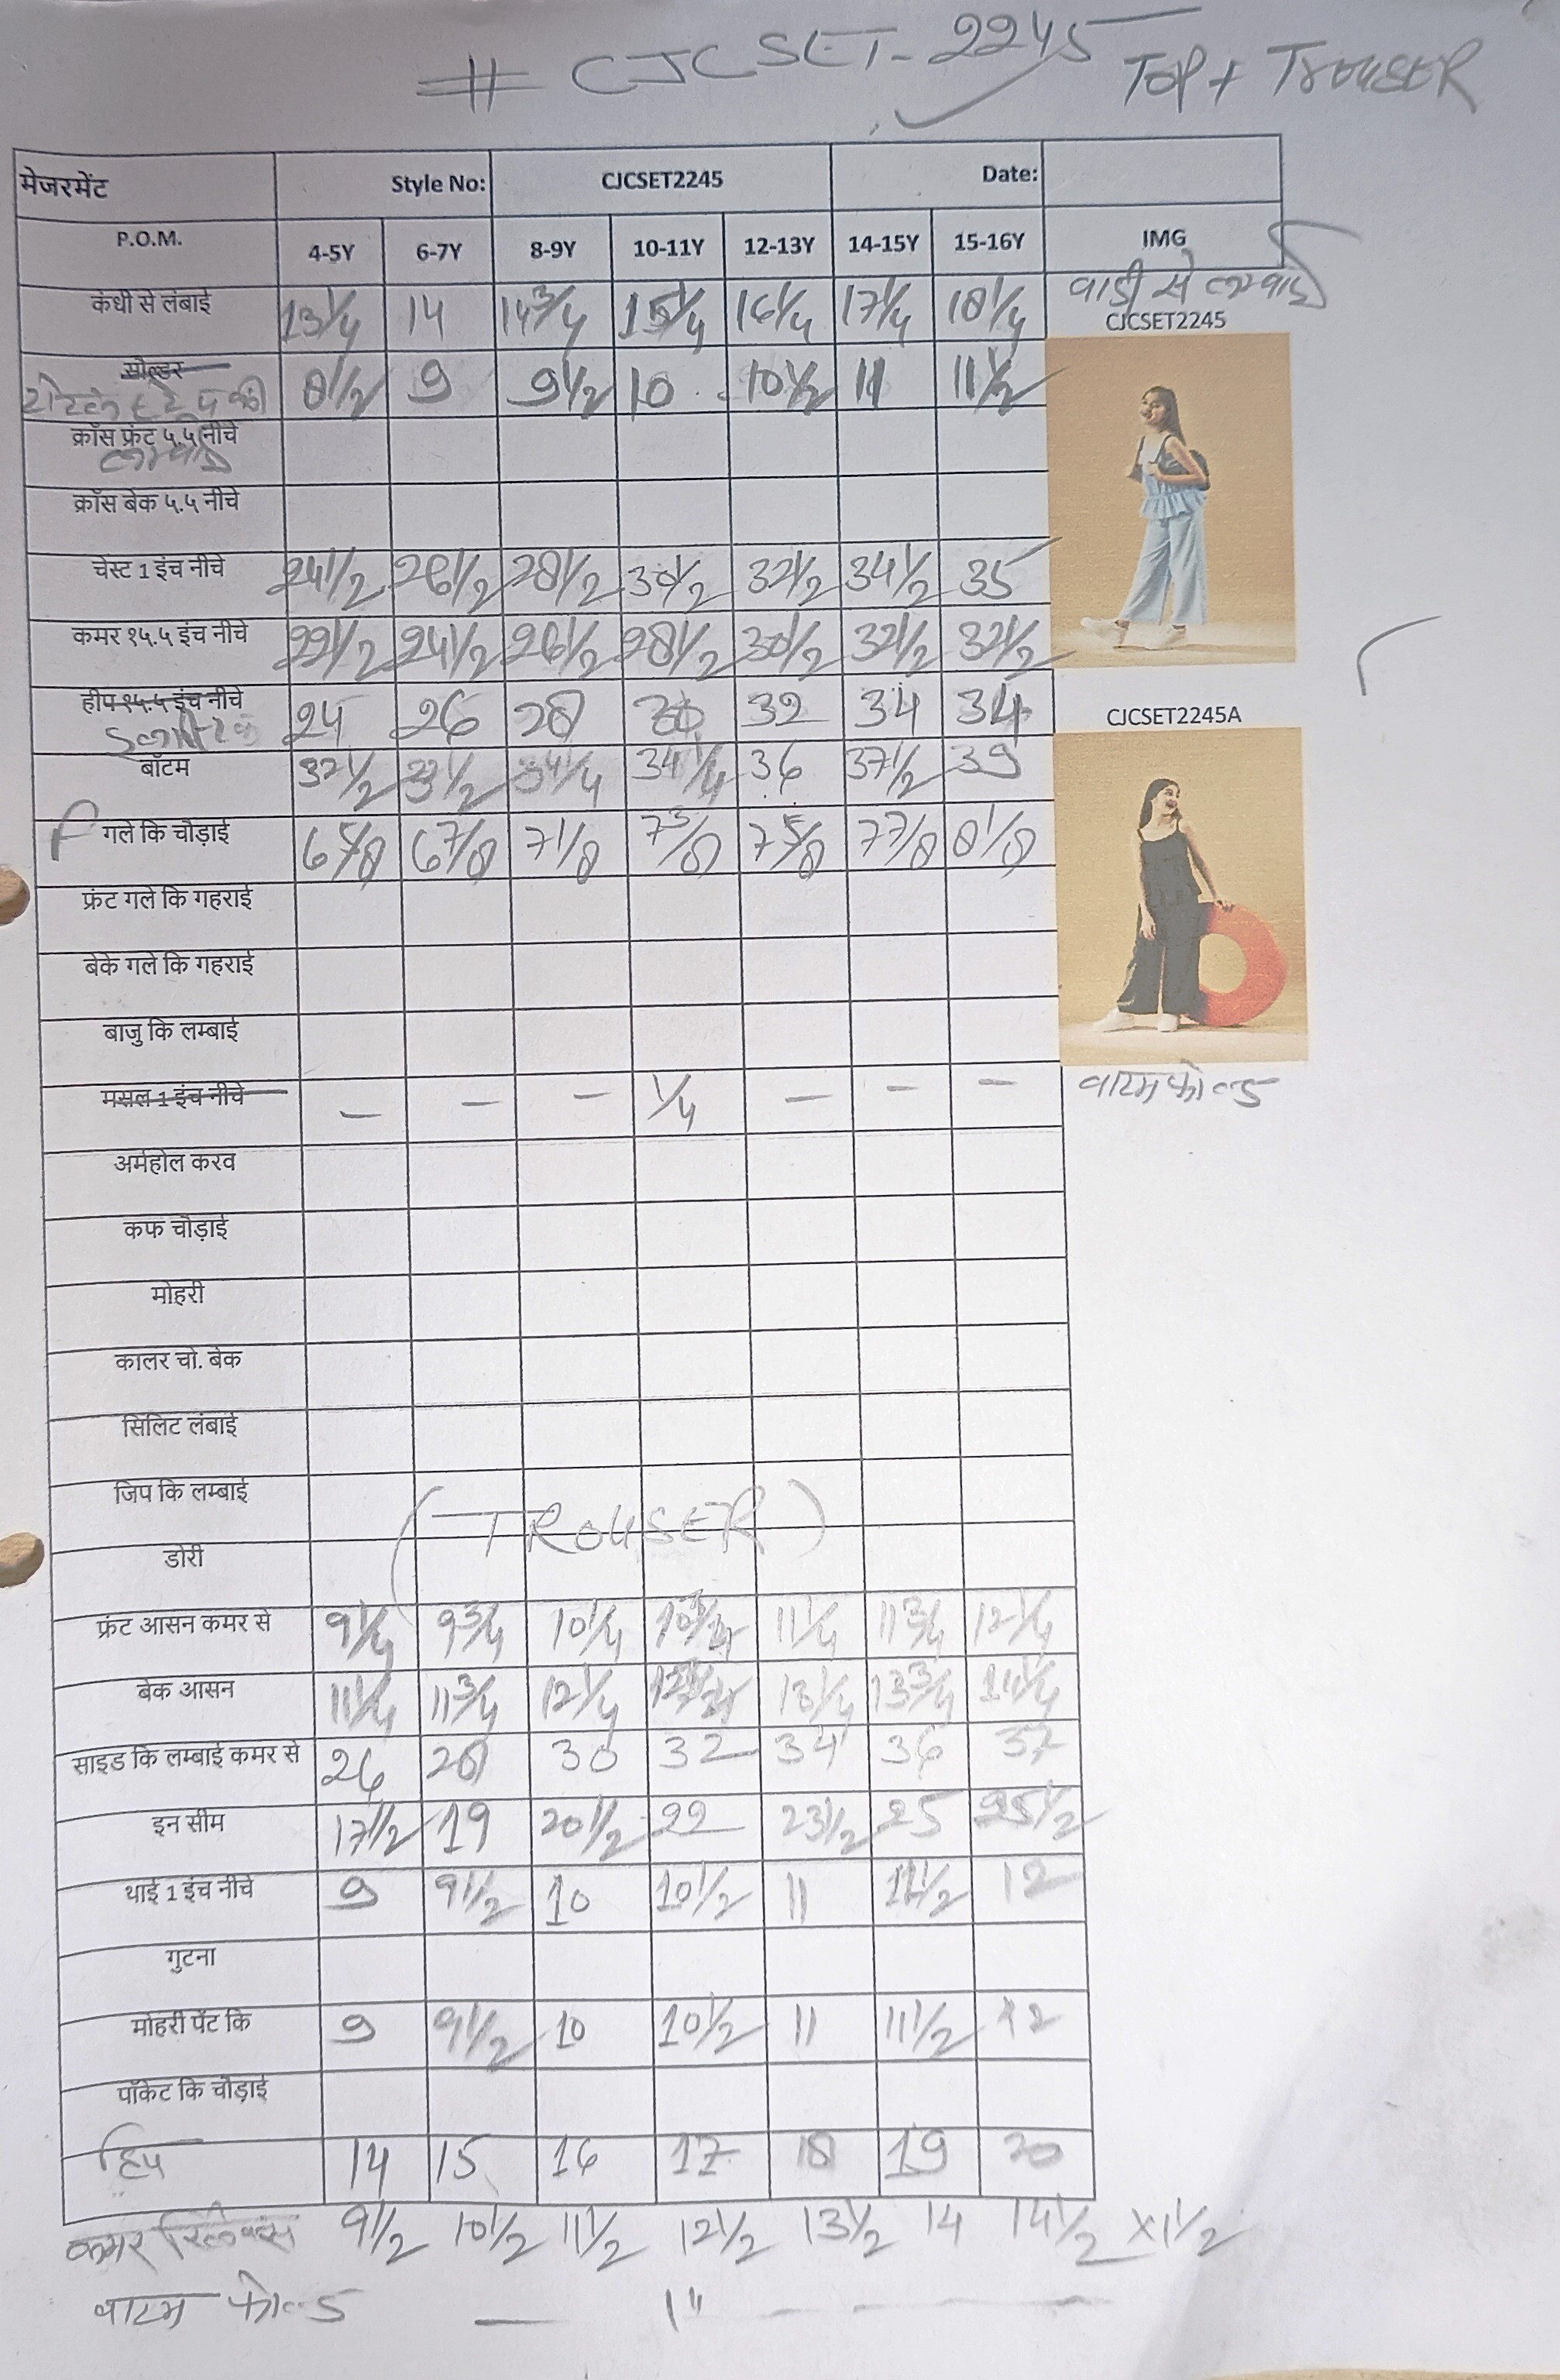 # CJCSET-2245
TOP + TROUSER
मेजरमेंट Style No: CJCSET2245 Date:
P.O.M. 4-5Y 6-7Y 8-9Y 10-11Y 12-13Y 14-15Y 15-16Y IMG
कंधी से लंबाई 13 1/4 14 14 3/4 15 1/4 16 1/4 17 1/4 18 1/4 वाडी से लम्बाई
CJCSET2245
सोल्डर
8 1/2 9 9 1/2 10 10 1/2 11 11 1/2
क्रॉस फ्रंट ५.५ नीचे
लम्बाई
क्रॉस बेक ५.५ नीचे
चेस्ट 1 इंच नीचे 24 1/2 26 1/2 28 1/2 30 1/2 32 1/2 34 1/2 35
कमर १५.५ इंच नीचे 22 1/2 24 1/2 26 1/2 28 1/2 30 1/2 32 1/2 32 1/2
हीप १५.५ इंच नीचे 24 26 28 30 32 34 34
CJCSET2245A
बॉटम 32 1/2 33 1/2 34 1/4 34 1/4 36 37 1/2 39
गले कि चौड़ाई 6 5/8 6 7/8 7 1/8 7 3/8 7 5/8 7 7/8 8 1/8
फ्रंट गले कि गहराई
बेके गले कि गहराई
बाजु कि लम्बाई
मसल 1 इंच नीचे - - - 1/4 - - - वाटम फोल्ड
अर्महोल करव
कफ चौड़ाई
मोहरी
कालर चो. बेक
सिलिट लंबाई
जिप कि लम्बाई
(TROUSER)
डोरी
फ्रंट आसन कमर से 9 1/4 9 3/4 10 1/4 10 3/4 11 1/4 11 3/4 12 1/4
बेक आसन 11 1/4 11 3/4 12 1/4 12 3/4 13 1/4 13 3/4 14 1/4
साइड कि लम्बाई कमर से 26 28 30 32 34 36 37
इन सीम 17 1/2 19 20 1/2 22 23 1/2 25 25 1/2
थाई 1 इंच नीचे 9 9 1/2 10 10 1/2 11 11 1/2 12
गुटना
मोहरी पेंट कि 9 9 1/2 10 10 1/2 11 11 1/2 12
पॉकेट कि चौड़ाई
हिप 14 15 16 17 18 19 20
कमर रिलेक्स 9 1/2 10 1/2 11 1/2 12 1/2 13 1/2 14 14 1/2 X 1 1/2
वाटम फोल्ड — 1" — — —